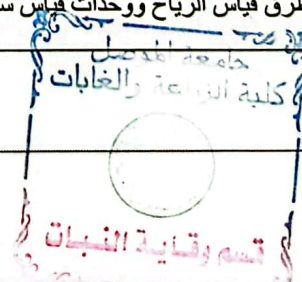 طرق قياس الرياح ووحدات قياس
جامعة الموصل
كلية الزراعة والغابات
قسم وقاية النبات